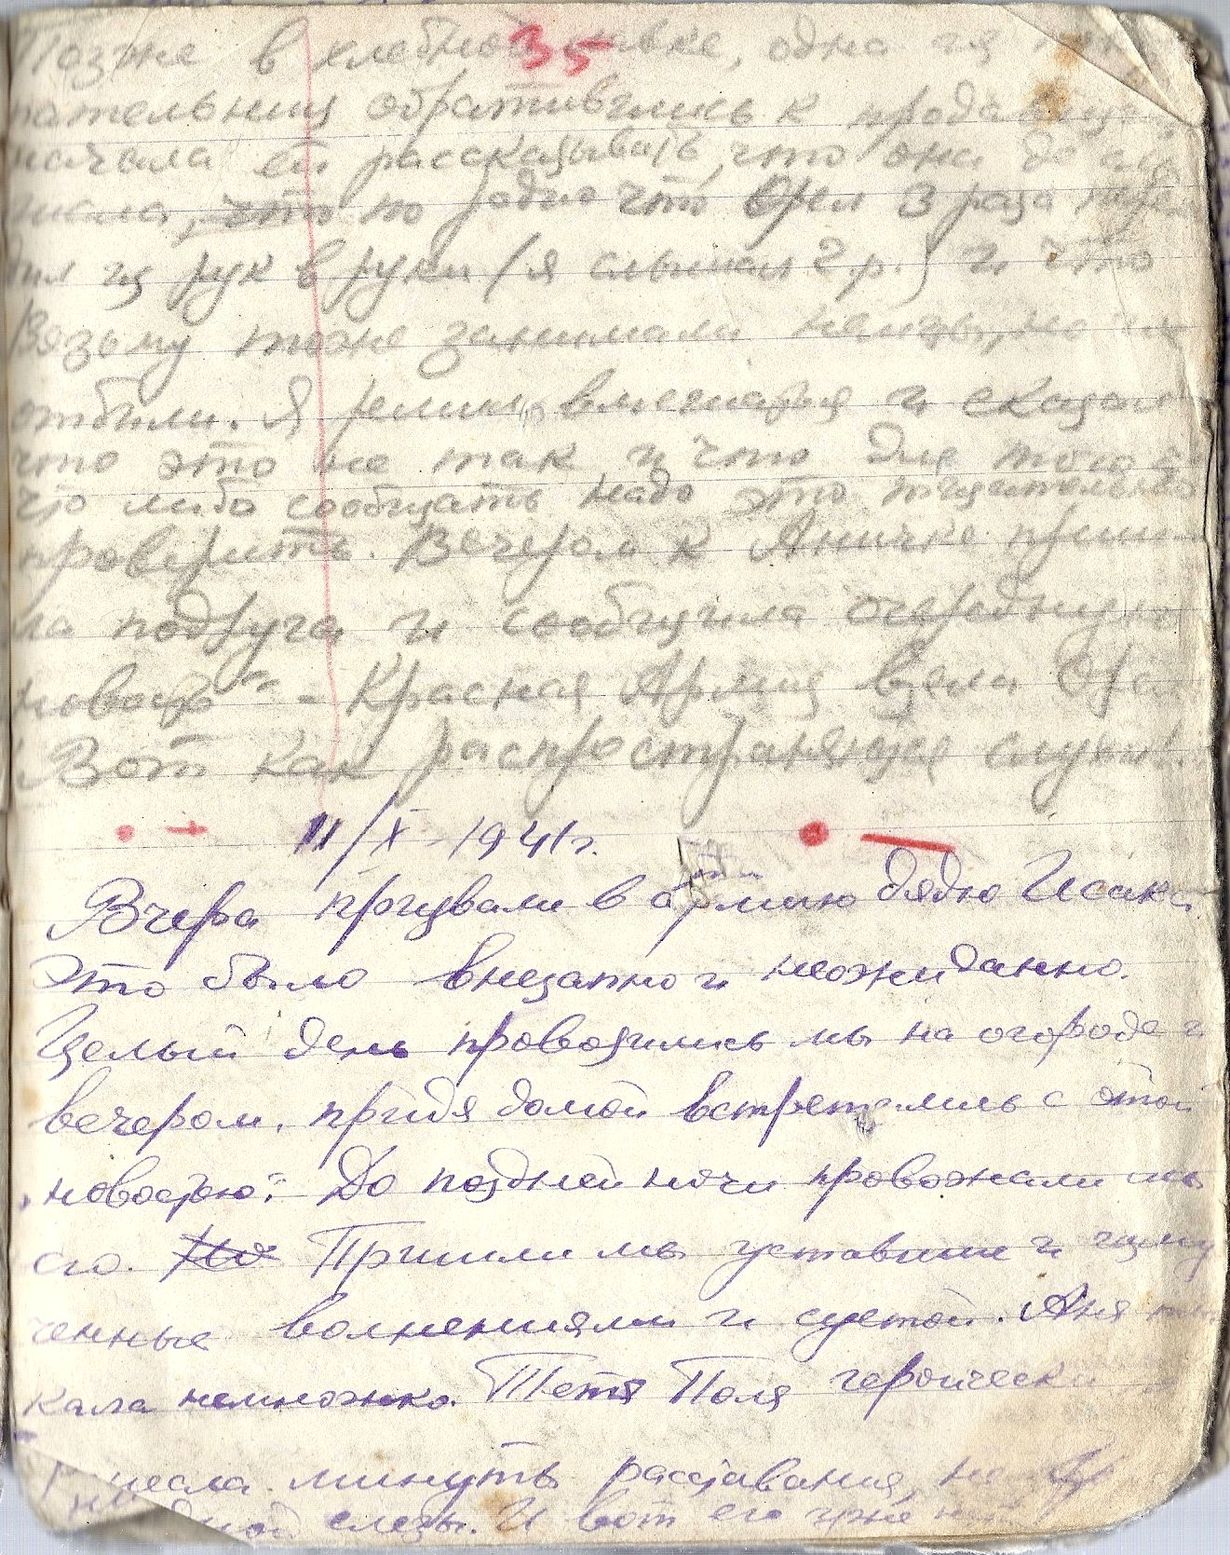 35
Позже в хлебной лавке, одна из поку
пательниц обратившись к продавщице
начала ей рассказывать, что она
что по радио что Орёл 3 раза пере
дил из рук в руки (я слышал 2 р.) и что
Вязьму тоже занимали немцы, но их
отбили. Я решил вмешаться и сказал
что это не так и что для того
что либо сообщать надо это тщательно
проверить. Вечером к Аничке приш
ла подруга и сообщила очередную
новость" - Красная Армия взяла Орёл
Вот как распространяются слухи!
11/X-1941г.
Вчера призвали в армию дядю Исака
Это было внезапно и неожиданно.
Целый день провозились мы на огороде и
вечером, придя домой встретились с этой
„новостью". До поздней ночи провожали мы
его. Пришли мы уставшие и изму
ченные волнениями и суетой. Аня пла
кала немножко. Тётя Поля героически
несла минуты расставания, не
ни одной слезы. И вот его уже нет